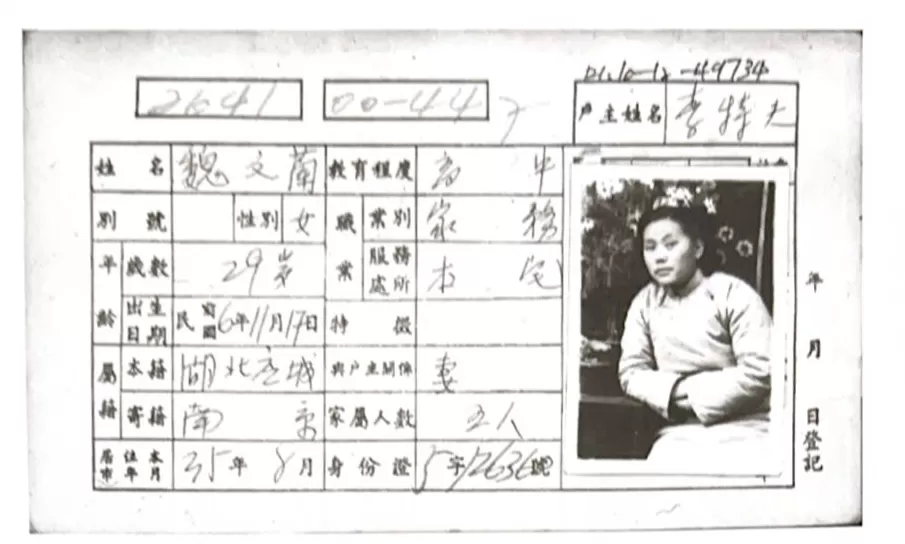 01.10-12-49734
2641 00-44
户主姓名 李特夫
姓名 魏文蘭 教育程度 高中
別號 性別 女 職業 業別 家務
年齡 歲數 29岁 服務處所 本宅
出生日期 民國6年11月17日 特徵
屬籍 本籍 湖北應城 與户主關係 妻
寄籍 南京 家屬人數 五人
居住本市年月 35年8月 身份證 字12636號
年月日登記